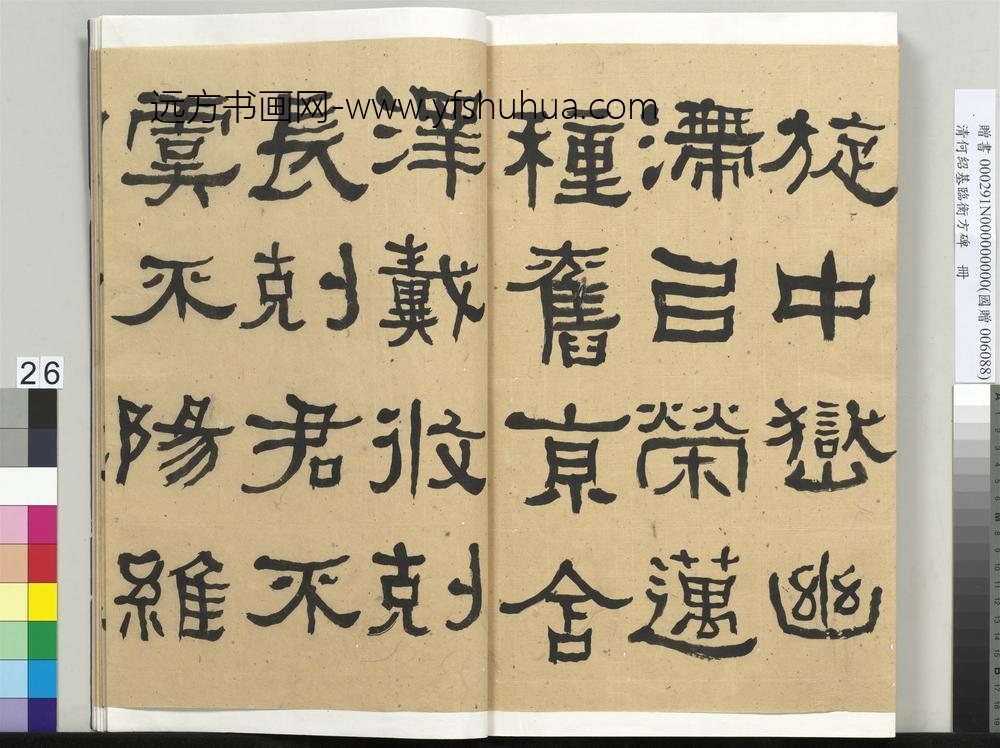 旋中嶽幽
滯㠯榮邁
種舊京舍
澤戴收剋
長剋君不
虞不陽維
远方书画网-www.yfshuhua.com
贈書 000291N000000000(國贈 006088)
清何紹基臨衡方碑 冊
26